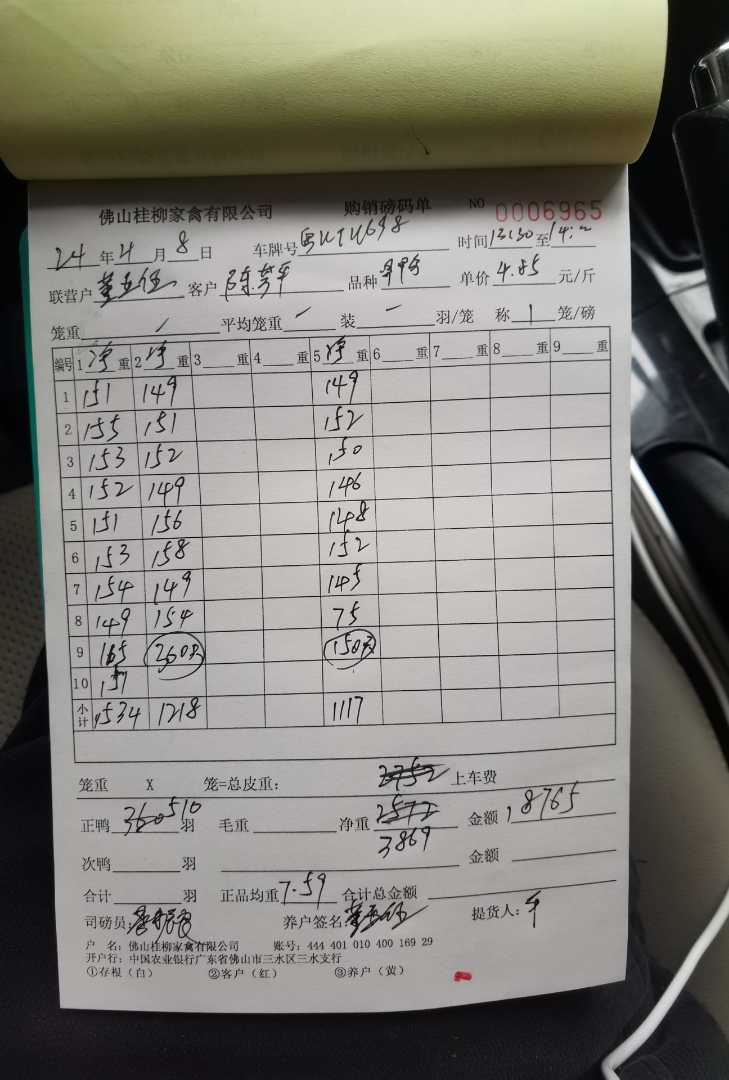 佛山桂柳家禽有限公司 购销磅码单 NO 0006965
24年4月8日 车牌号 时间13:30至14:
联营户 客户 品种 单价4.85元/斤
笼重 / 平均笼重 一 装 一 羽/笼 称 1 笼/磅
编号 1净重 2净重 3重 4重 5净重 6重 7重 8重 9重
1 151 149 149
2 155 151 152
3 153 152 150
4 152 149 146
5 151 156 148
6 153 158 152
7 154 149 145
8 149 154 75
9 165 360只 150只
10 151
小计 1534 1218 1117
笼重 X 笼=总皮重: 2752 上车费
正鸭 360 510 羽 毛重 净重 2572 金额 18765
3869
次鸭 羽 金额
合计 羽 正品均重 7.59 合计总金额
司磅员: 养户签名: 提货人:
户 名: 佛山桂柳家禽有限公司 账号: 444 401 010 400 169 29
开户行: 中国农业银行广东省佛山市三水区三水支行
①存根（白） ②客户（红） ③养户（黄）